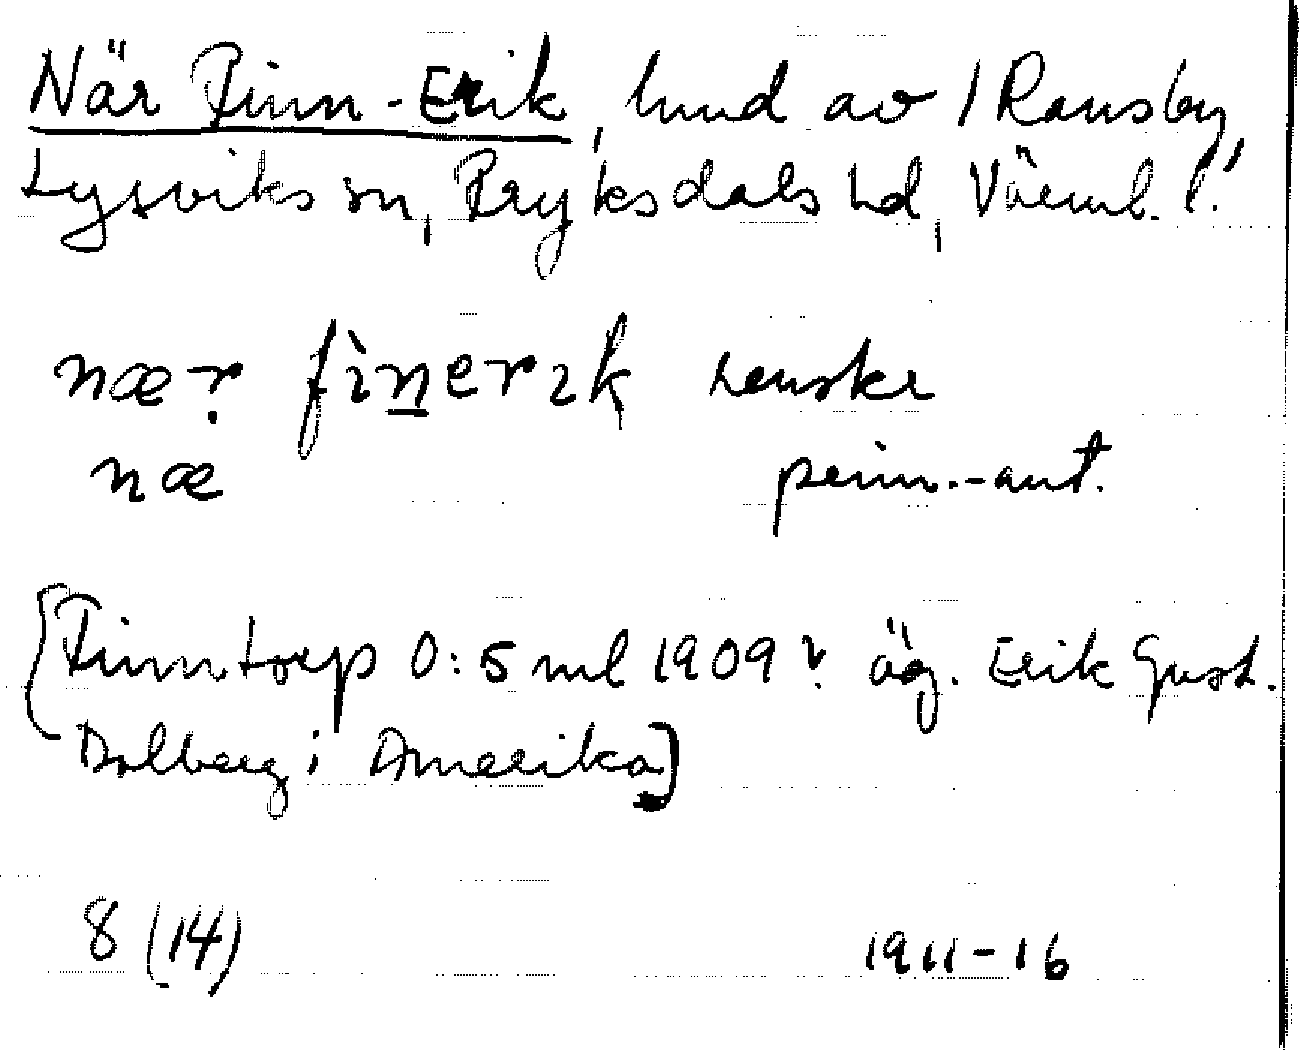 När Finn-Erik, hmd av 1 Ransby,
Lysviks sn, Fryksdals hd, Värml. l.
nær finerik
næ penn.-ant.
[Finntorp 0:5 ml 1909? äg. Erik Gust.
Dalberg i Amerika]
8 (14) 1911-16